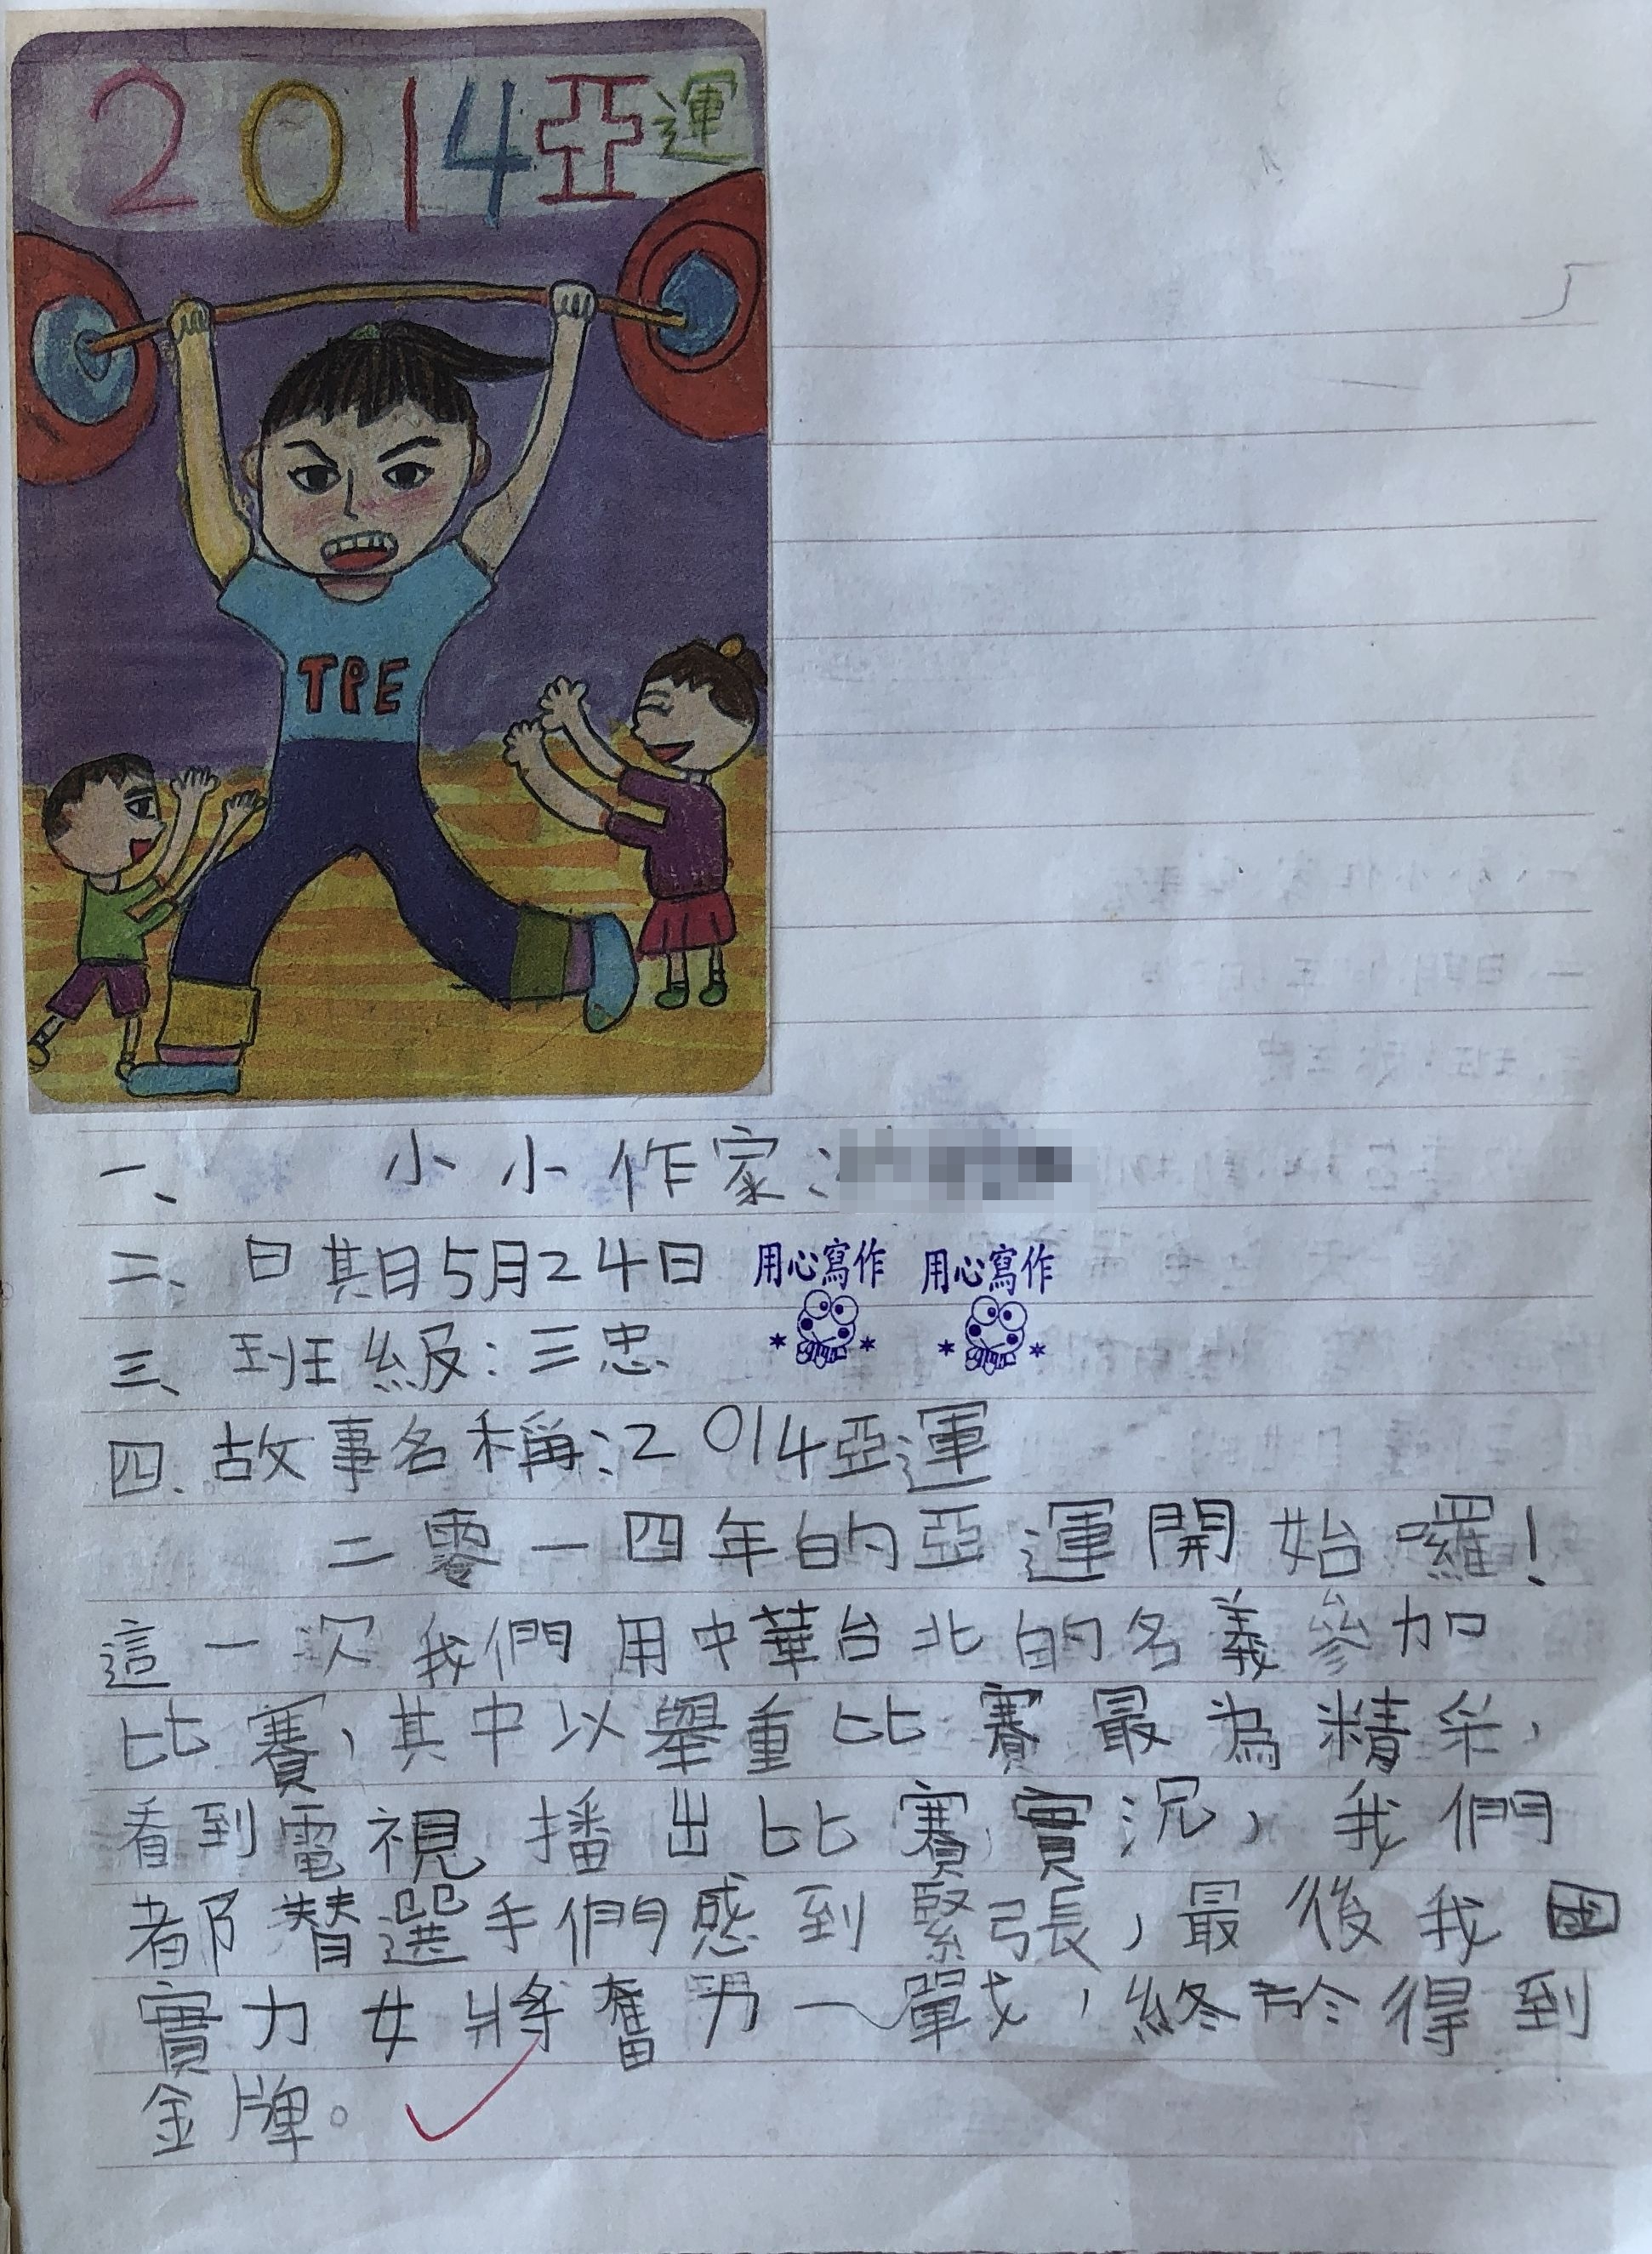 2014亞運
TPE
一、小小作家:
二、日期日5月24日
用心寫作 用心寫作
三、班級:三忠
四、故事名稱:2014亞運
二零一四年的亞運開始囉!
這一次我們用中華台北的名義參加
比賽,其中以舉重比賽最為精采,
看到電視播出比賽實況,我們
都替選手們感到緊張,最後我國
實力女將奮勇一戰,終於得到
金牌。